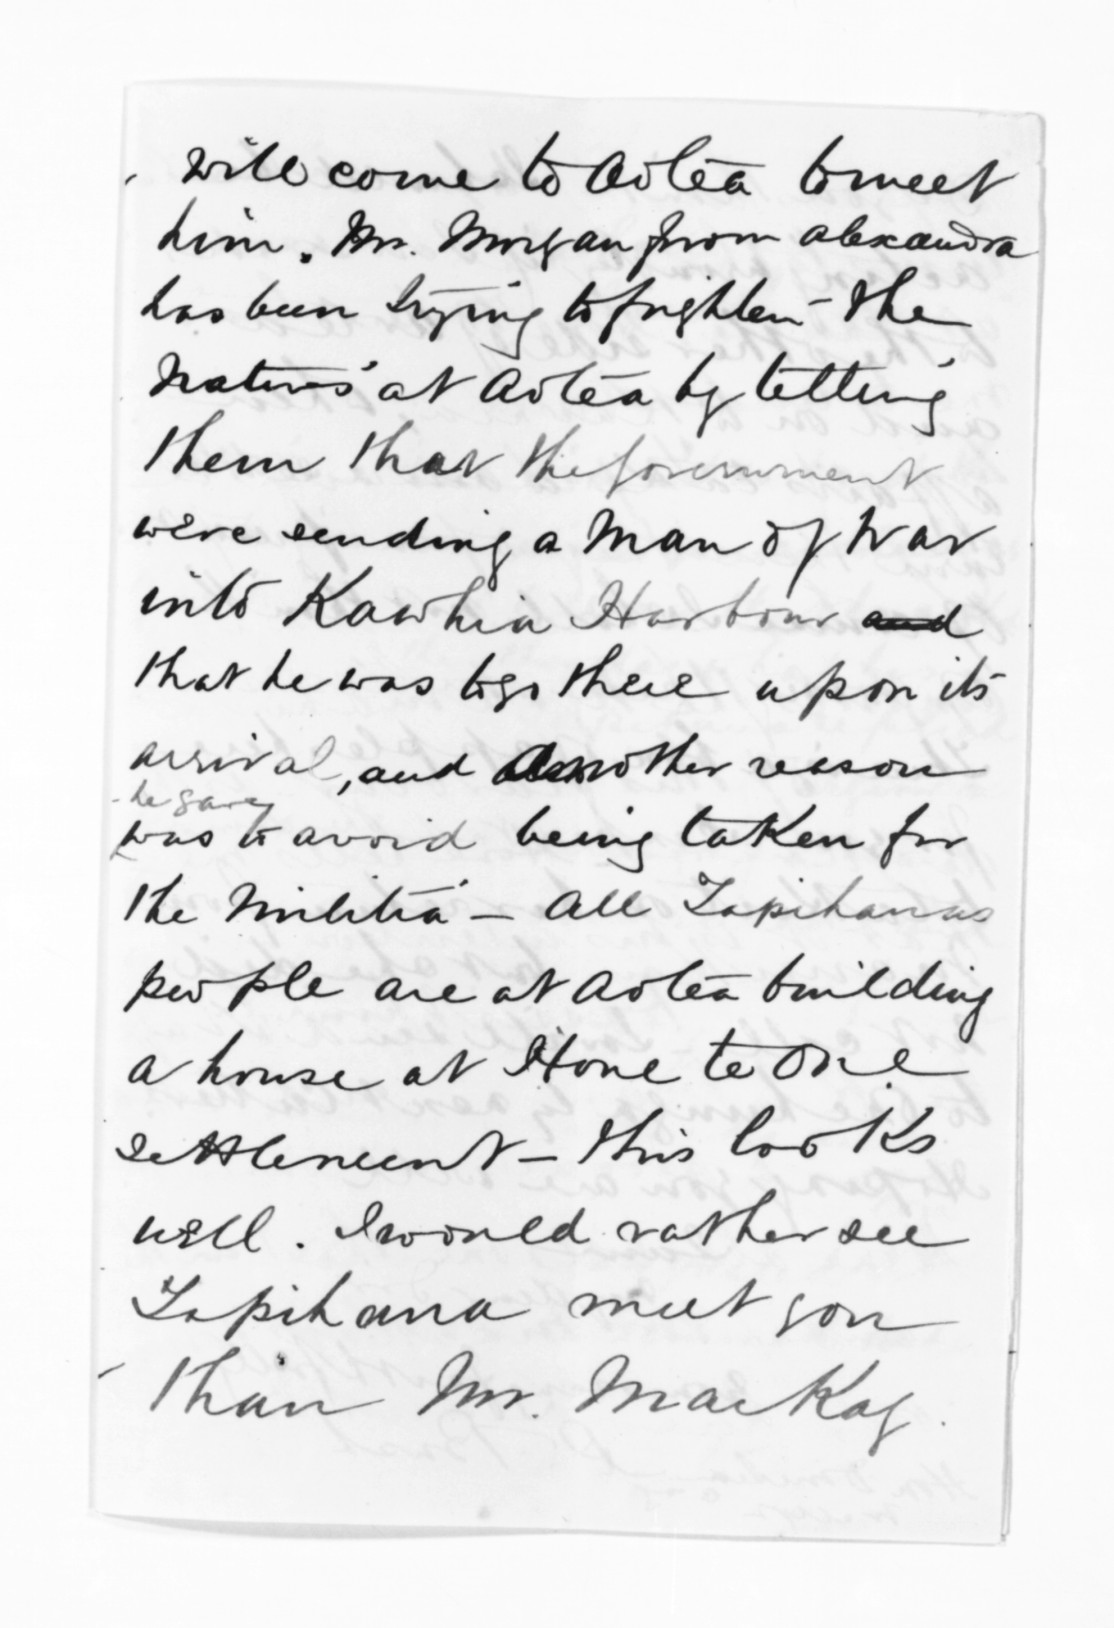 will come to Aotea to meet
him. Mr. Morgan from Alexandra
has been trying to frighten the
Natives at Aotea by telling
them that the Government
were sending a Man of War
into Kawhia Harbour and
that he was to go there upon its
arrival, and another reason
he gave
was to avoid being taken for
the Militia — All Tapihanas
people are at Aotea building
a house at Hone te One
settlement — this looks
well. I would rather see
Tapihana meet you
than Mr. MacKay.